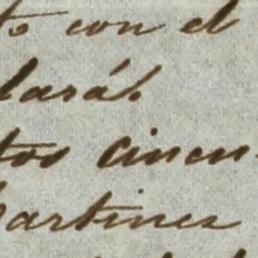 to con el
lará.
tos cincu
Martines